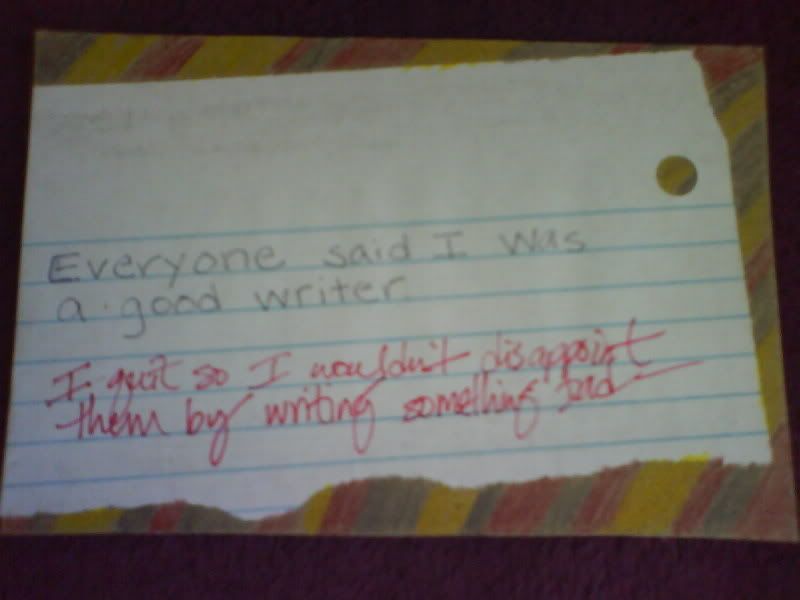 Everyone said I was
a good writer.
I quit so I wouldn't disappoint
them by writing something bad